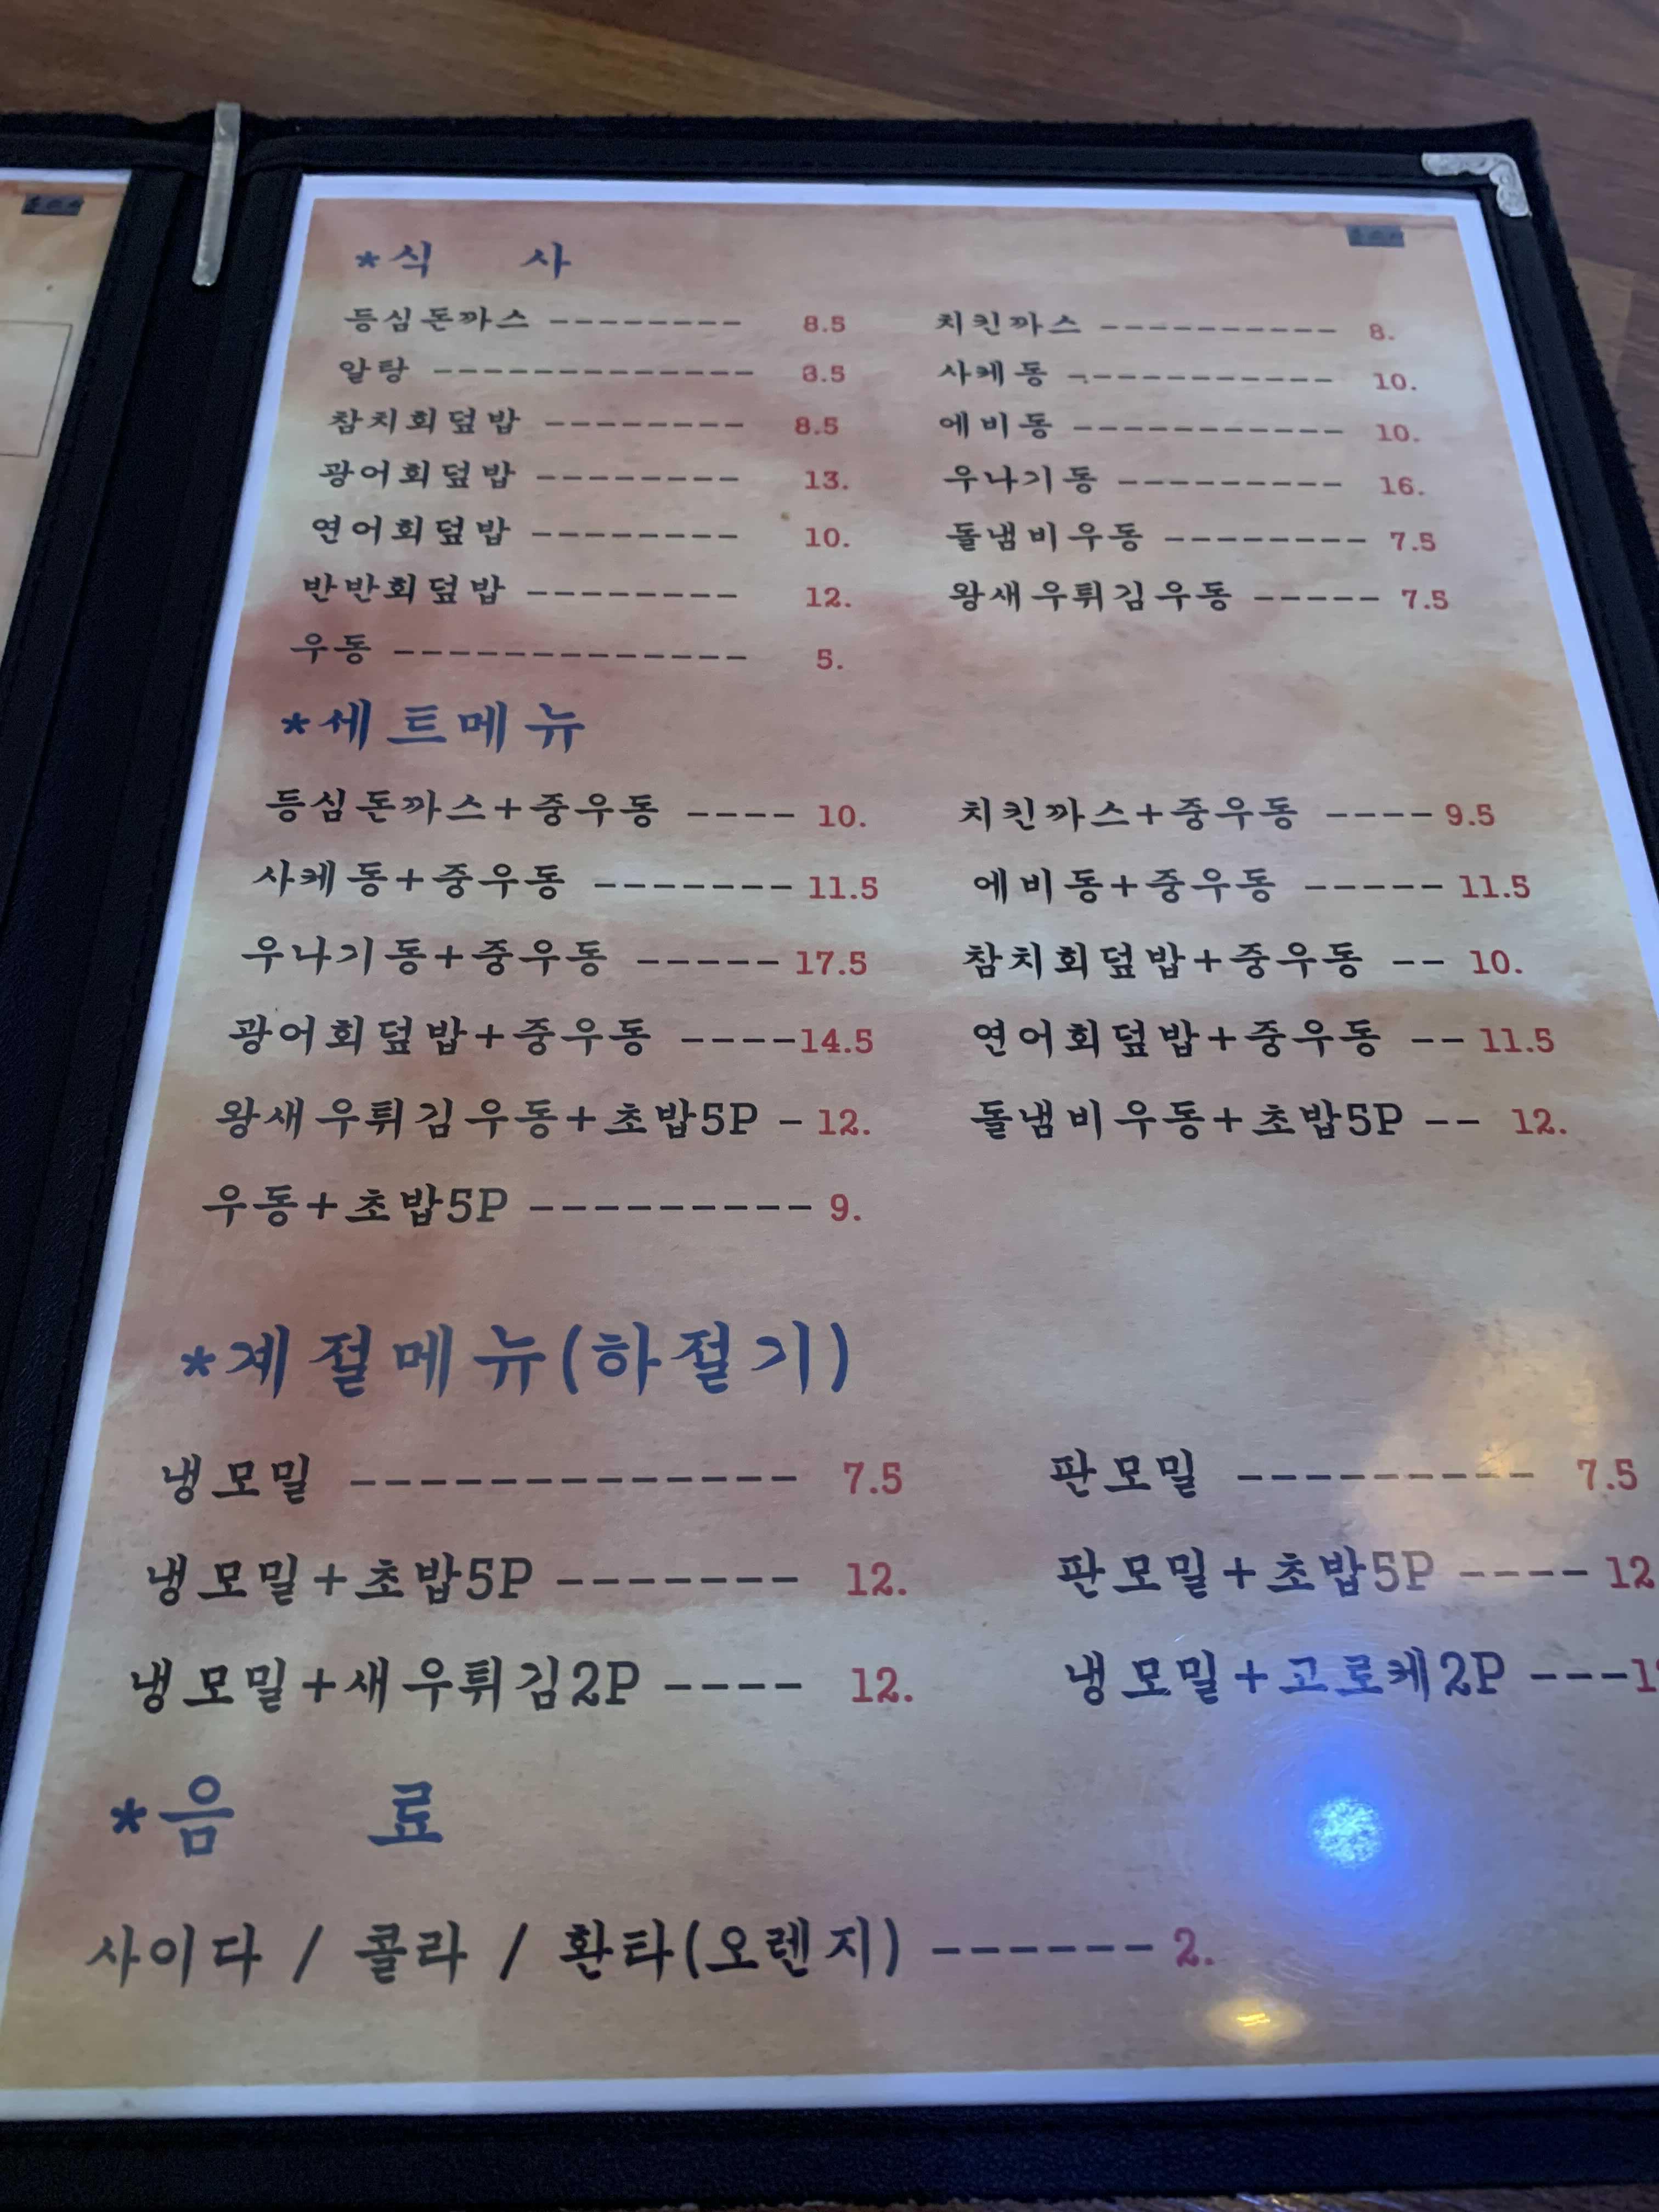 *식 사
등심돈까스 -------- 8.5 치킨까스 ---------- 8.
알탕 ------------- 8.5 사케동 ----------- 10.
참치회덮밥 -------- 8.5 에비동 ----------- 10.
광어회덮밥 -------- 13. 우나기동 --------- 16.
연어회덮밥 -------- 10. 돌냄비우동 -------- 7.5
반반회덮밥 -------- 12. 왕새우튀김우동 ----- 7.5
우동 ------------- 5.
*세트메뉴
등심돈까스+중우동 ---- 10. 치킨까스+중우동 ---- 9.5
사케동+중우동 ------- 11.5 에비동+중우동 ----- 11.5
우나기동+중우동 ----- 17.5 참치회덮밥+중우동 -- 10.
광어회덮밥+중우동 ----14.5 연어회덮밥+중우동 -- 11.5
왕새우튀김우동+초밥5P - 12. 돌냄비우동+초밥5P -- 12.
우동+초밥5P ---------- 9.
*계절메뉴(하절기)
냉모밀 ------------- 7.5 판모밀 --------- 7.5
냉모밀+초밥5P ------- 12. 판모밀+초밥5P ---- 12
냉모밀+새우튀김2P ---- 12. 냉모밀+고로케2P ---
*음 료
사이다 / 콜라 / 환타(오렌지) ------ 2.